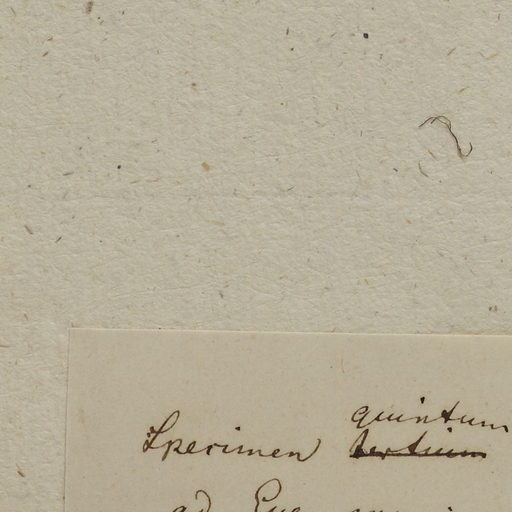 quintum
Specimen tertium
ad